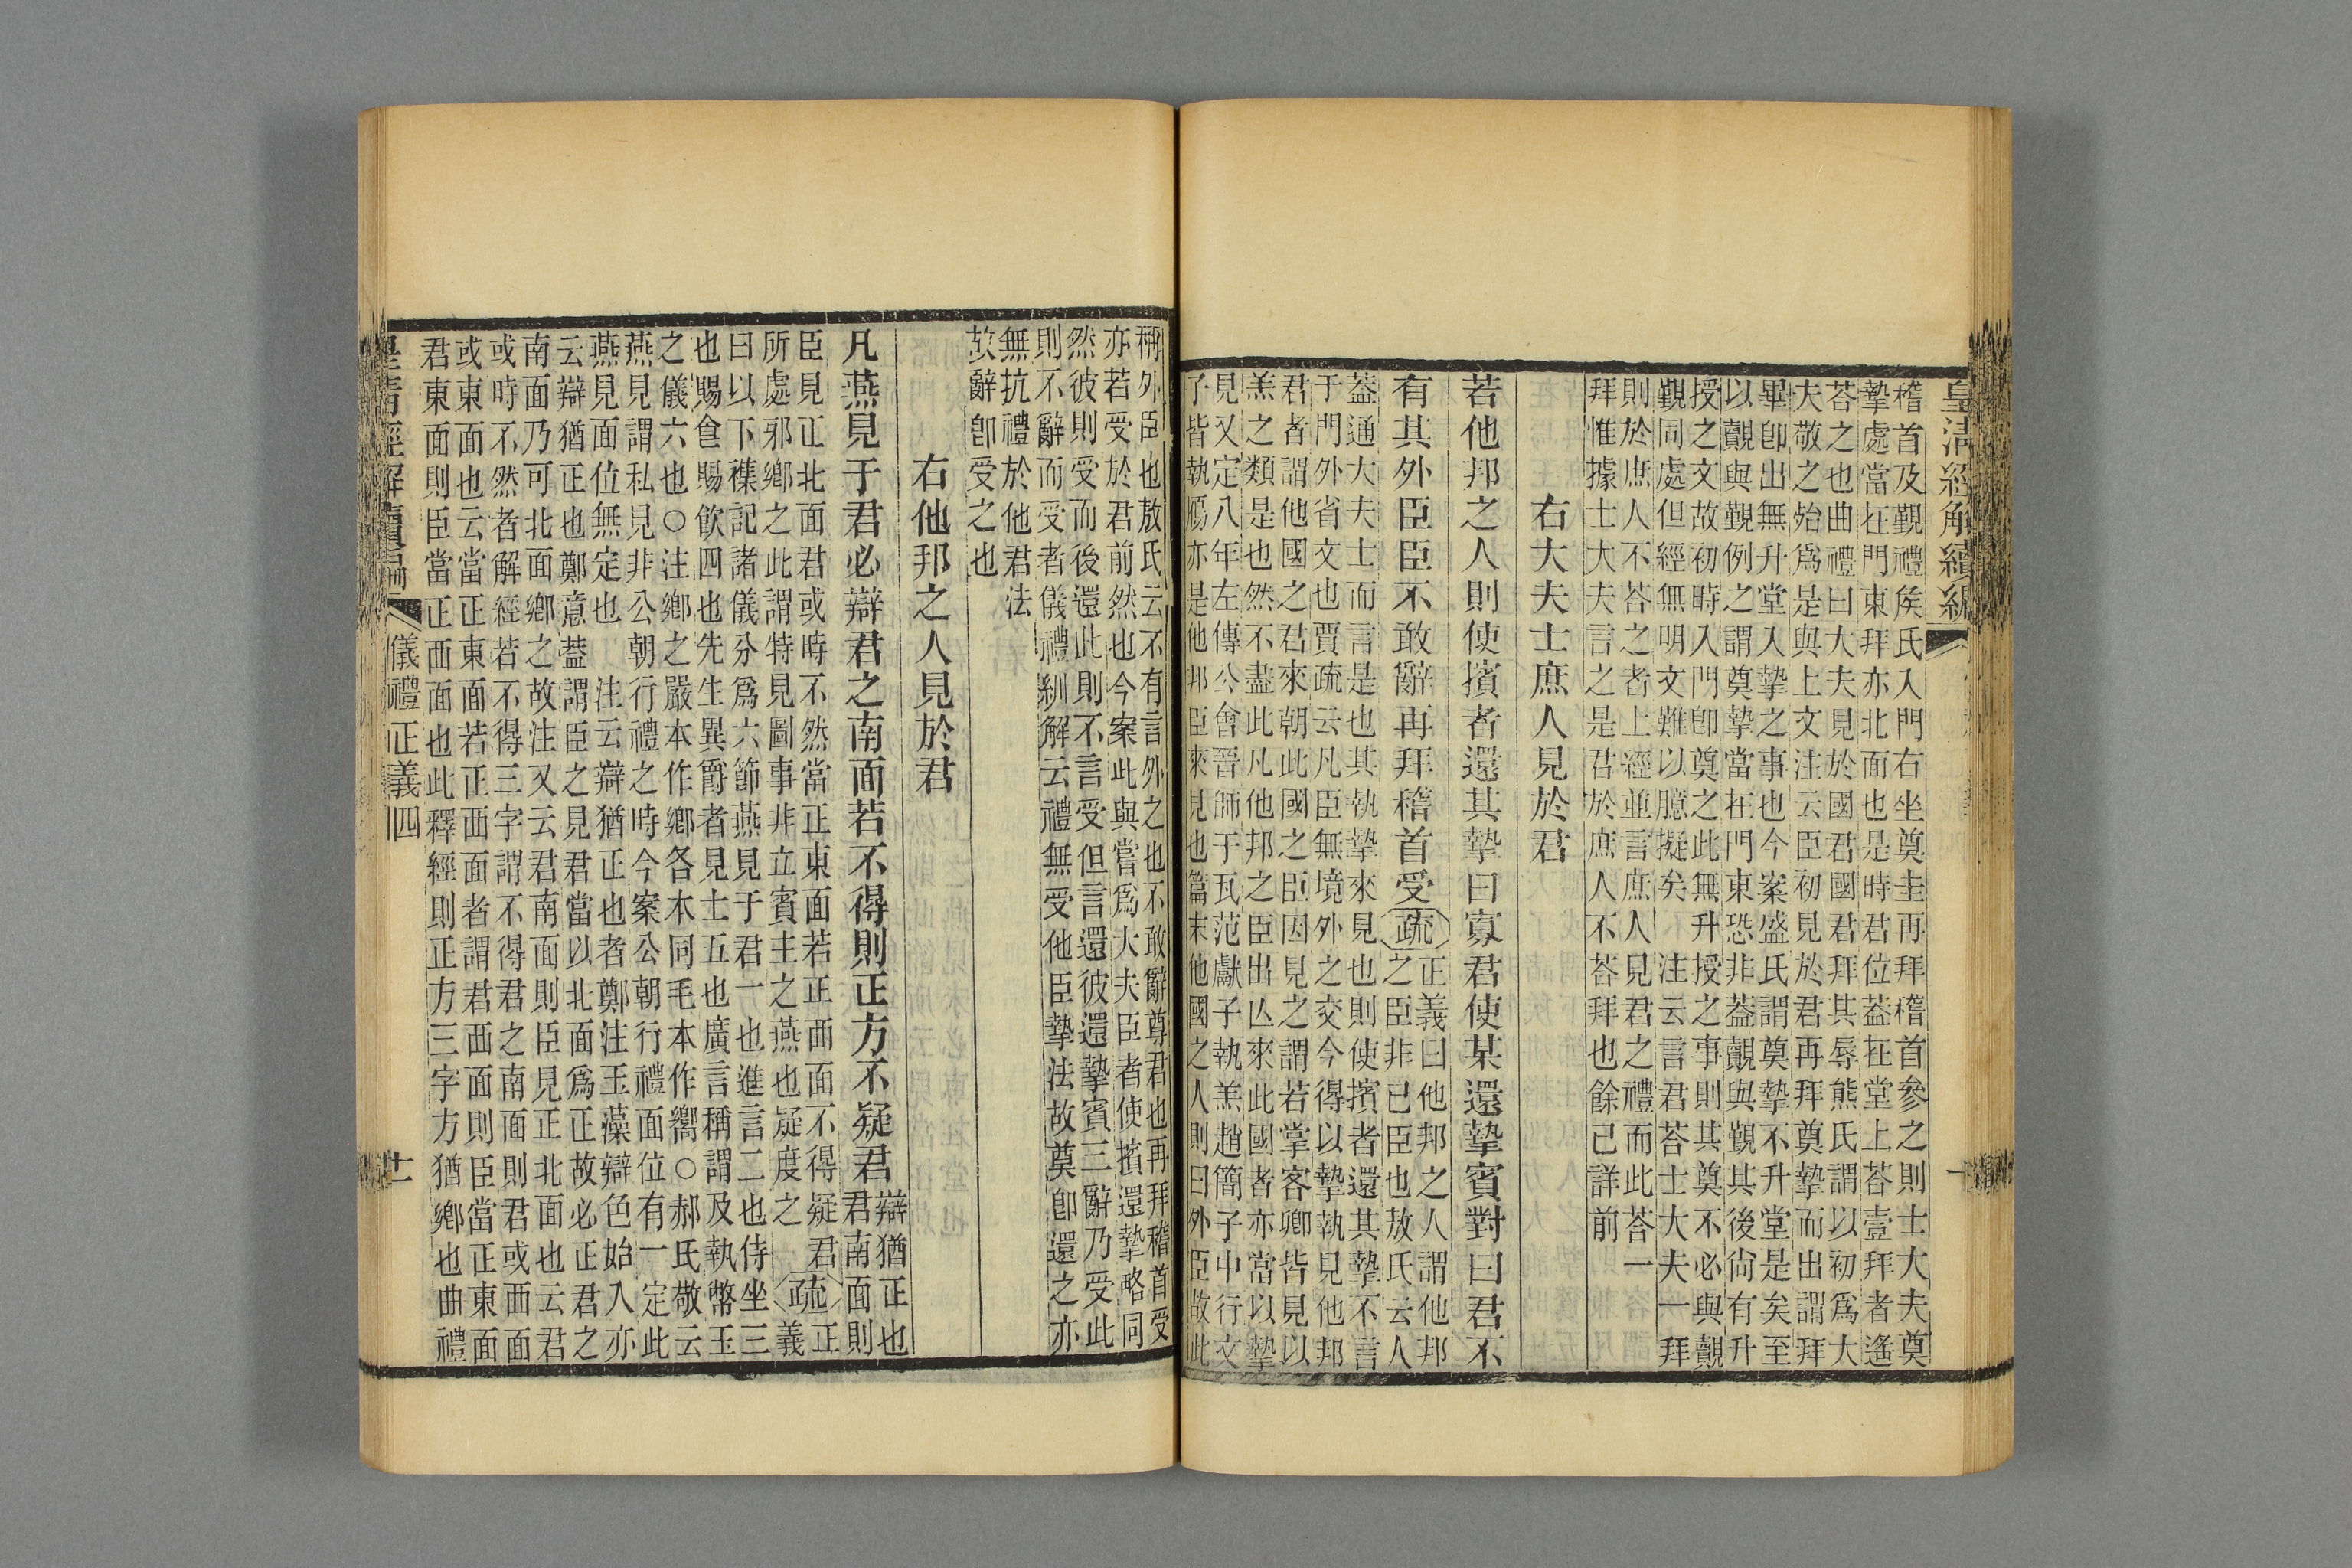 皇清經解續編
稽首及覲禮矦氏入門右坐奠圭再拜稽首參之則士大夫奠
摯處當在門東拜亦北面也是時君位葢在堂上荅壹拜者遙
荅之也曲禮曰大夫見於國君國君拜其辱熊氏謂以初爲大
夫敬之始爲是與上文注云臣初見於君再拜奠摯而出謂拜
畢卽出無升堂入摯之事也今案盛氏謂奠摯不升堂是矣至
以觀與覲例之謂奠摯當在門東恐非葢覿與覲其後尙有升
授之文故初時入門卽奠之此無升授之事則其奠不必與覿
覲同處但經無明文難以臆擬矣 注云言君荅士大夫一拜
則於庶人不荅之者上經並言庶人見君之禮而此荅一
拜惟據士大夫言之是君於庶人不荅拜也餘已詳前
右大夫士庶人見於君
若他邦之人則使擯者還其摯曰寡君使某還摯賓對曰君不
有其外臣臣不敢辭再拜稽首受
疏
正義曰他邦之人謂他邦
之臣非已臣也敖氏云人
葢通大夫士而言是也其執摯來見也則使擯者還其摯不言
于門外省文也賈疏云凡臣無境外之交今得以摯執見他邦
君者謂他國之君來朝此國之臣因見之謂若掌客卿皆見以
羔之類是也然不盡此凡他邦之臣出亾來此國者亦當以摯
見又定八年左傳公會晉師于瓦范獻子執羔趙簡子中行文
子皆執鴈亦是他邦臣來見也篇末他國之人則曰外臣故此
稱外臣也敖氏云不有言外之也不敢辭尊君也再拜稽首受
亦若受於君前然也今案此與嘗爲大夫臣者使擯還摯略同
然彼則受而後還此則不言受但言還彼還摯賓三辭乃受此
則不辭而受者儀禮紃解云禮無受他臣摯法故奠卽還之亦
無抗禮於他君法
故辭卽受之也
右他邦之人見於君
凡燕見于君必辯君之南面若不得則正方不疑君
辯猶正也
君南面則
臣見正北面君或時不然當正東面若正西面不得疑君
所處邪鄉之此謂特見圖事非立賓主之燕也疑度之
疏
正
義
曰以下襍記諸儀分爲六節燕見于君一也進言二也侍坐三
也賜食賜飮四也先生異爵者見士五也廣言稱謂及執幣玉
之儀六也○注鄉之嚴本作鄉各本同毛本作嚮○郝氏敬云
燕見謂私見非公朝行禮之時今案公朝行禮面位有一定此
燕見面位無定也 注云辯猶正也者鄭注玉藻辯色始入亦
云辯猶正也鄭意葢謂臣之見君當以北面爲正故必正君之
南面乃可北面鄉之故注又云君南面則臣見正北面也云君
或時不然者解經若不得三字謂不得君之南面則君或西面
或東面也云當正東面若正西面者謂君西面則臣當正東面
君東面則臣當正西面也此釋經則正方三字方猶鄉也曲禮
皇清經解續編
儀禮正義四
十一